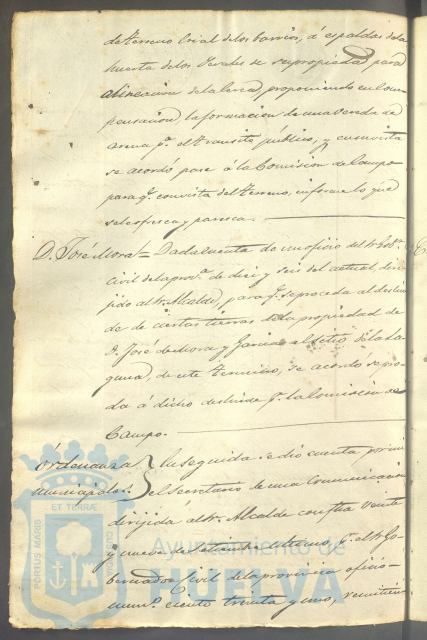 de terreno Erial de los barrios, á espaldas de la
huerta de los de su propiedad para
alineacion de la cerca, proponiendo en com-
pensacion, la formacion de una vereda de
arena pª. el transito público, y en su vista
se acordó pase á la Comision de Campo
para qᵉ. con vista del terreno, informe lo que
se le ofresca y paresca.
D. José Mora = Dada cuenta de un oficio del Sr. Gobr.
civil de la provª. de diez y seis del actual, diri-
jido al Sr. Alcalde, para qᵉ. se proceda al deslin-
de de ciertas tierras de la propiedad de
D. José de Mora y Garcia al sitio de la La-
guna, de este termino, se acordó se pro-
ceda á dicho deslinde pʳ. la Comision de
Campo.
Ordenanzas En seguida se dió cuenta por mi
municipales. el Secretario de una Comunicacion
dirijida al Sr. Alcalde con fha. veinte
y nueve de Setiembre ultimo, pʳ. el Sr. Go-
bernador Civil de la provincia, oficio
numº. ciento treinta y uno, remitien
PORTUS MARIS ET TERRÆ CUSTODIA
Ayuntamiento de
HUELVA